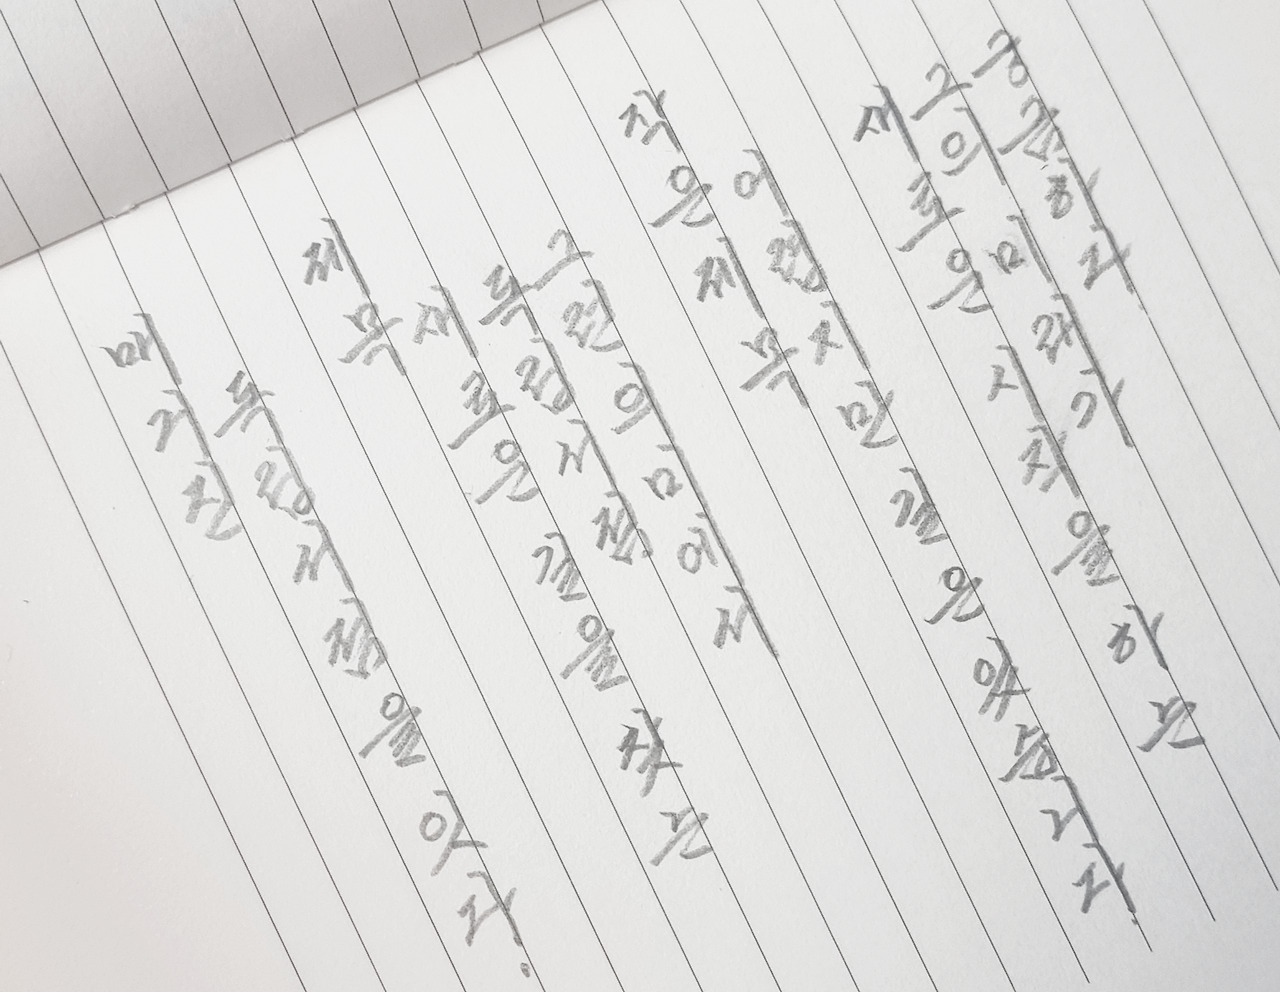 매거진
독립서점을 잇다.
제목
새로운 길을 찾는
독립서점
그런 의미에서
작은 제목
어렵지만 길은 있습니다.
새로운 시작을 하는
그의 미래가
궁금하다